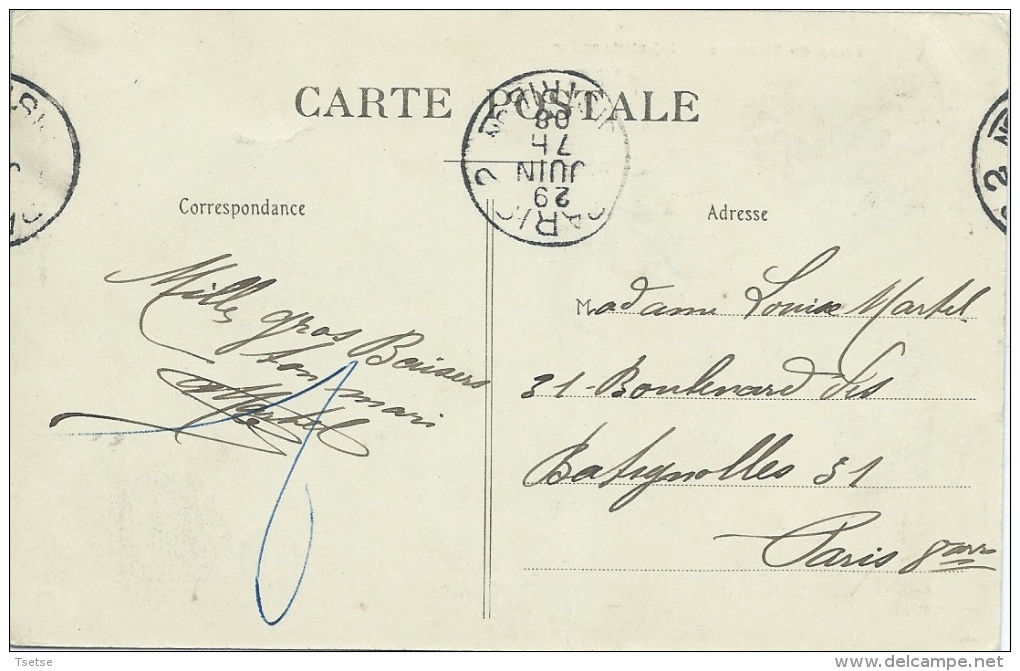 CARTE POSTALE
Correspondance
Adresse
PARIS 2
29
JUIN
7 H
08
Mille gros Baisers
ton mari
Martel
Madame Louise Martel
31 - Boulevard des
Batignolles 31
Paris 8 arr
Tsetse
www.delcampe.net